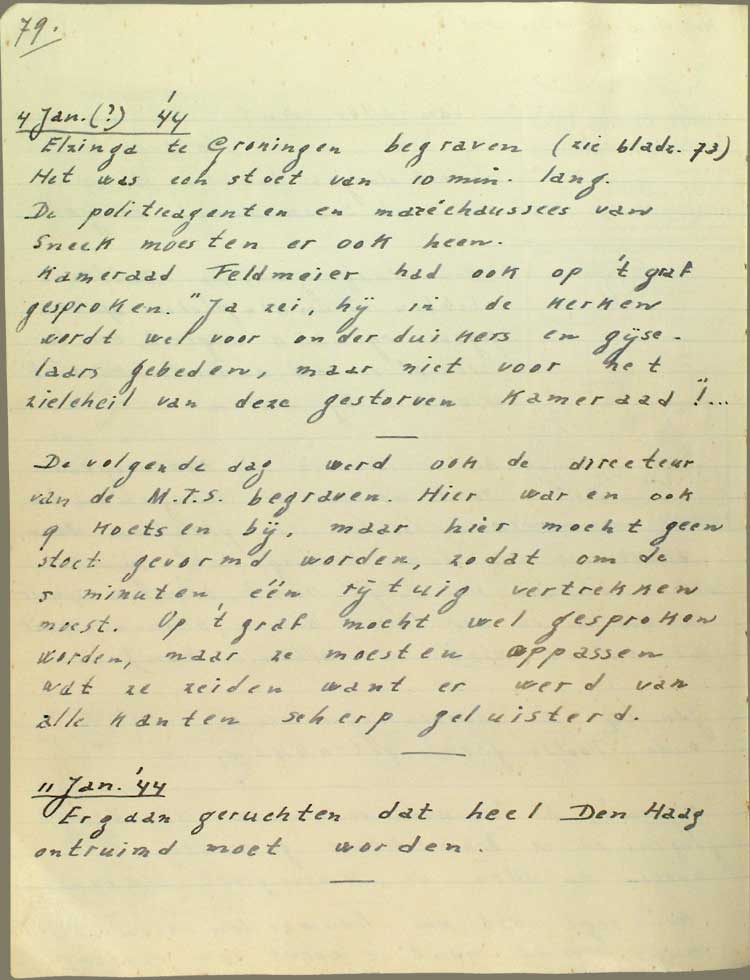 79.
4 Jan. (?) '44
Elzinga te Groningen begraven (zie bladz. 73)
Het was een stoet van 10 min. lang.
De politieagenten en maréchaussees van
Sneek moesten er ook heen.
Kameraad Feldmeier had ook op 't graf
gesproken. "Ja zei, hij in de kerken
wordt wel voor onderduikers en gijse-
laars gebeden, maar niet voor het
zieleheil van deze gestorven Kameraad"!...
De volgende dag werd ook de directeur
van de M.T.S. begraven. Hier waren ook
9 koetsen bij, maar hier mocht geen
stoet gevormd worden, zodat om de
5 minuten één rijtuig vertrekken
moest. Op 't graf mocht wel gesproken
worden, maar ze moesten oppassen
wat ze zeiden want er werd van
alle kanten scherp geluisterd.
11 Jan. '44
Er gaan geruchten dat heel Den Haag
ontruimd moet worden.